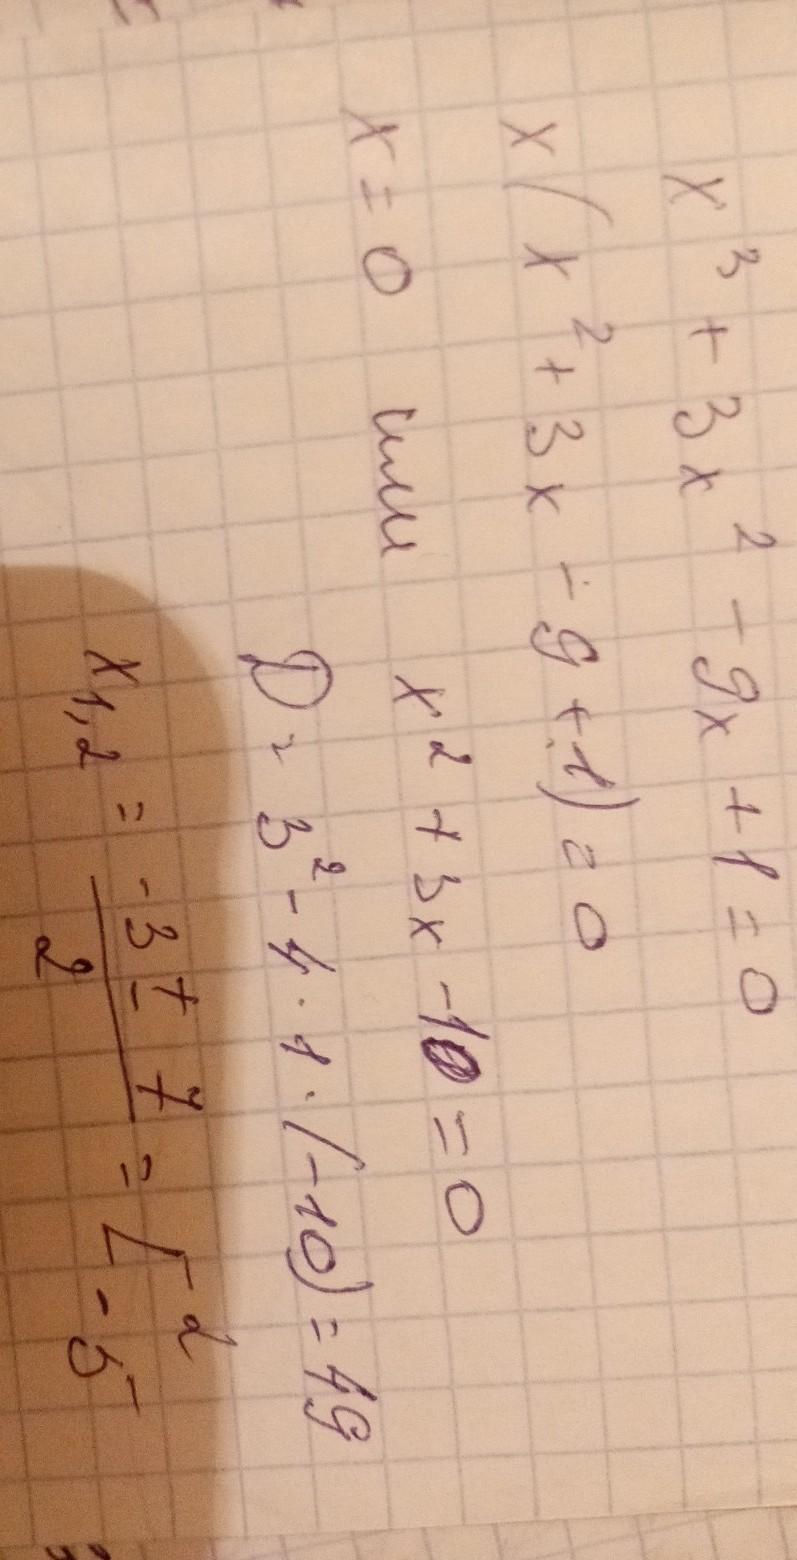 x³ + 3x² - 9x + 1 = 0
x(x² + 3x - 9 + 1) = 0
x = 0 или x² + 3x - 10 = 0
D = 3² - 4 · 1 · (-10) = 49
x1,2 = (-3 ± 7)/2 = [2 -5